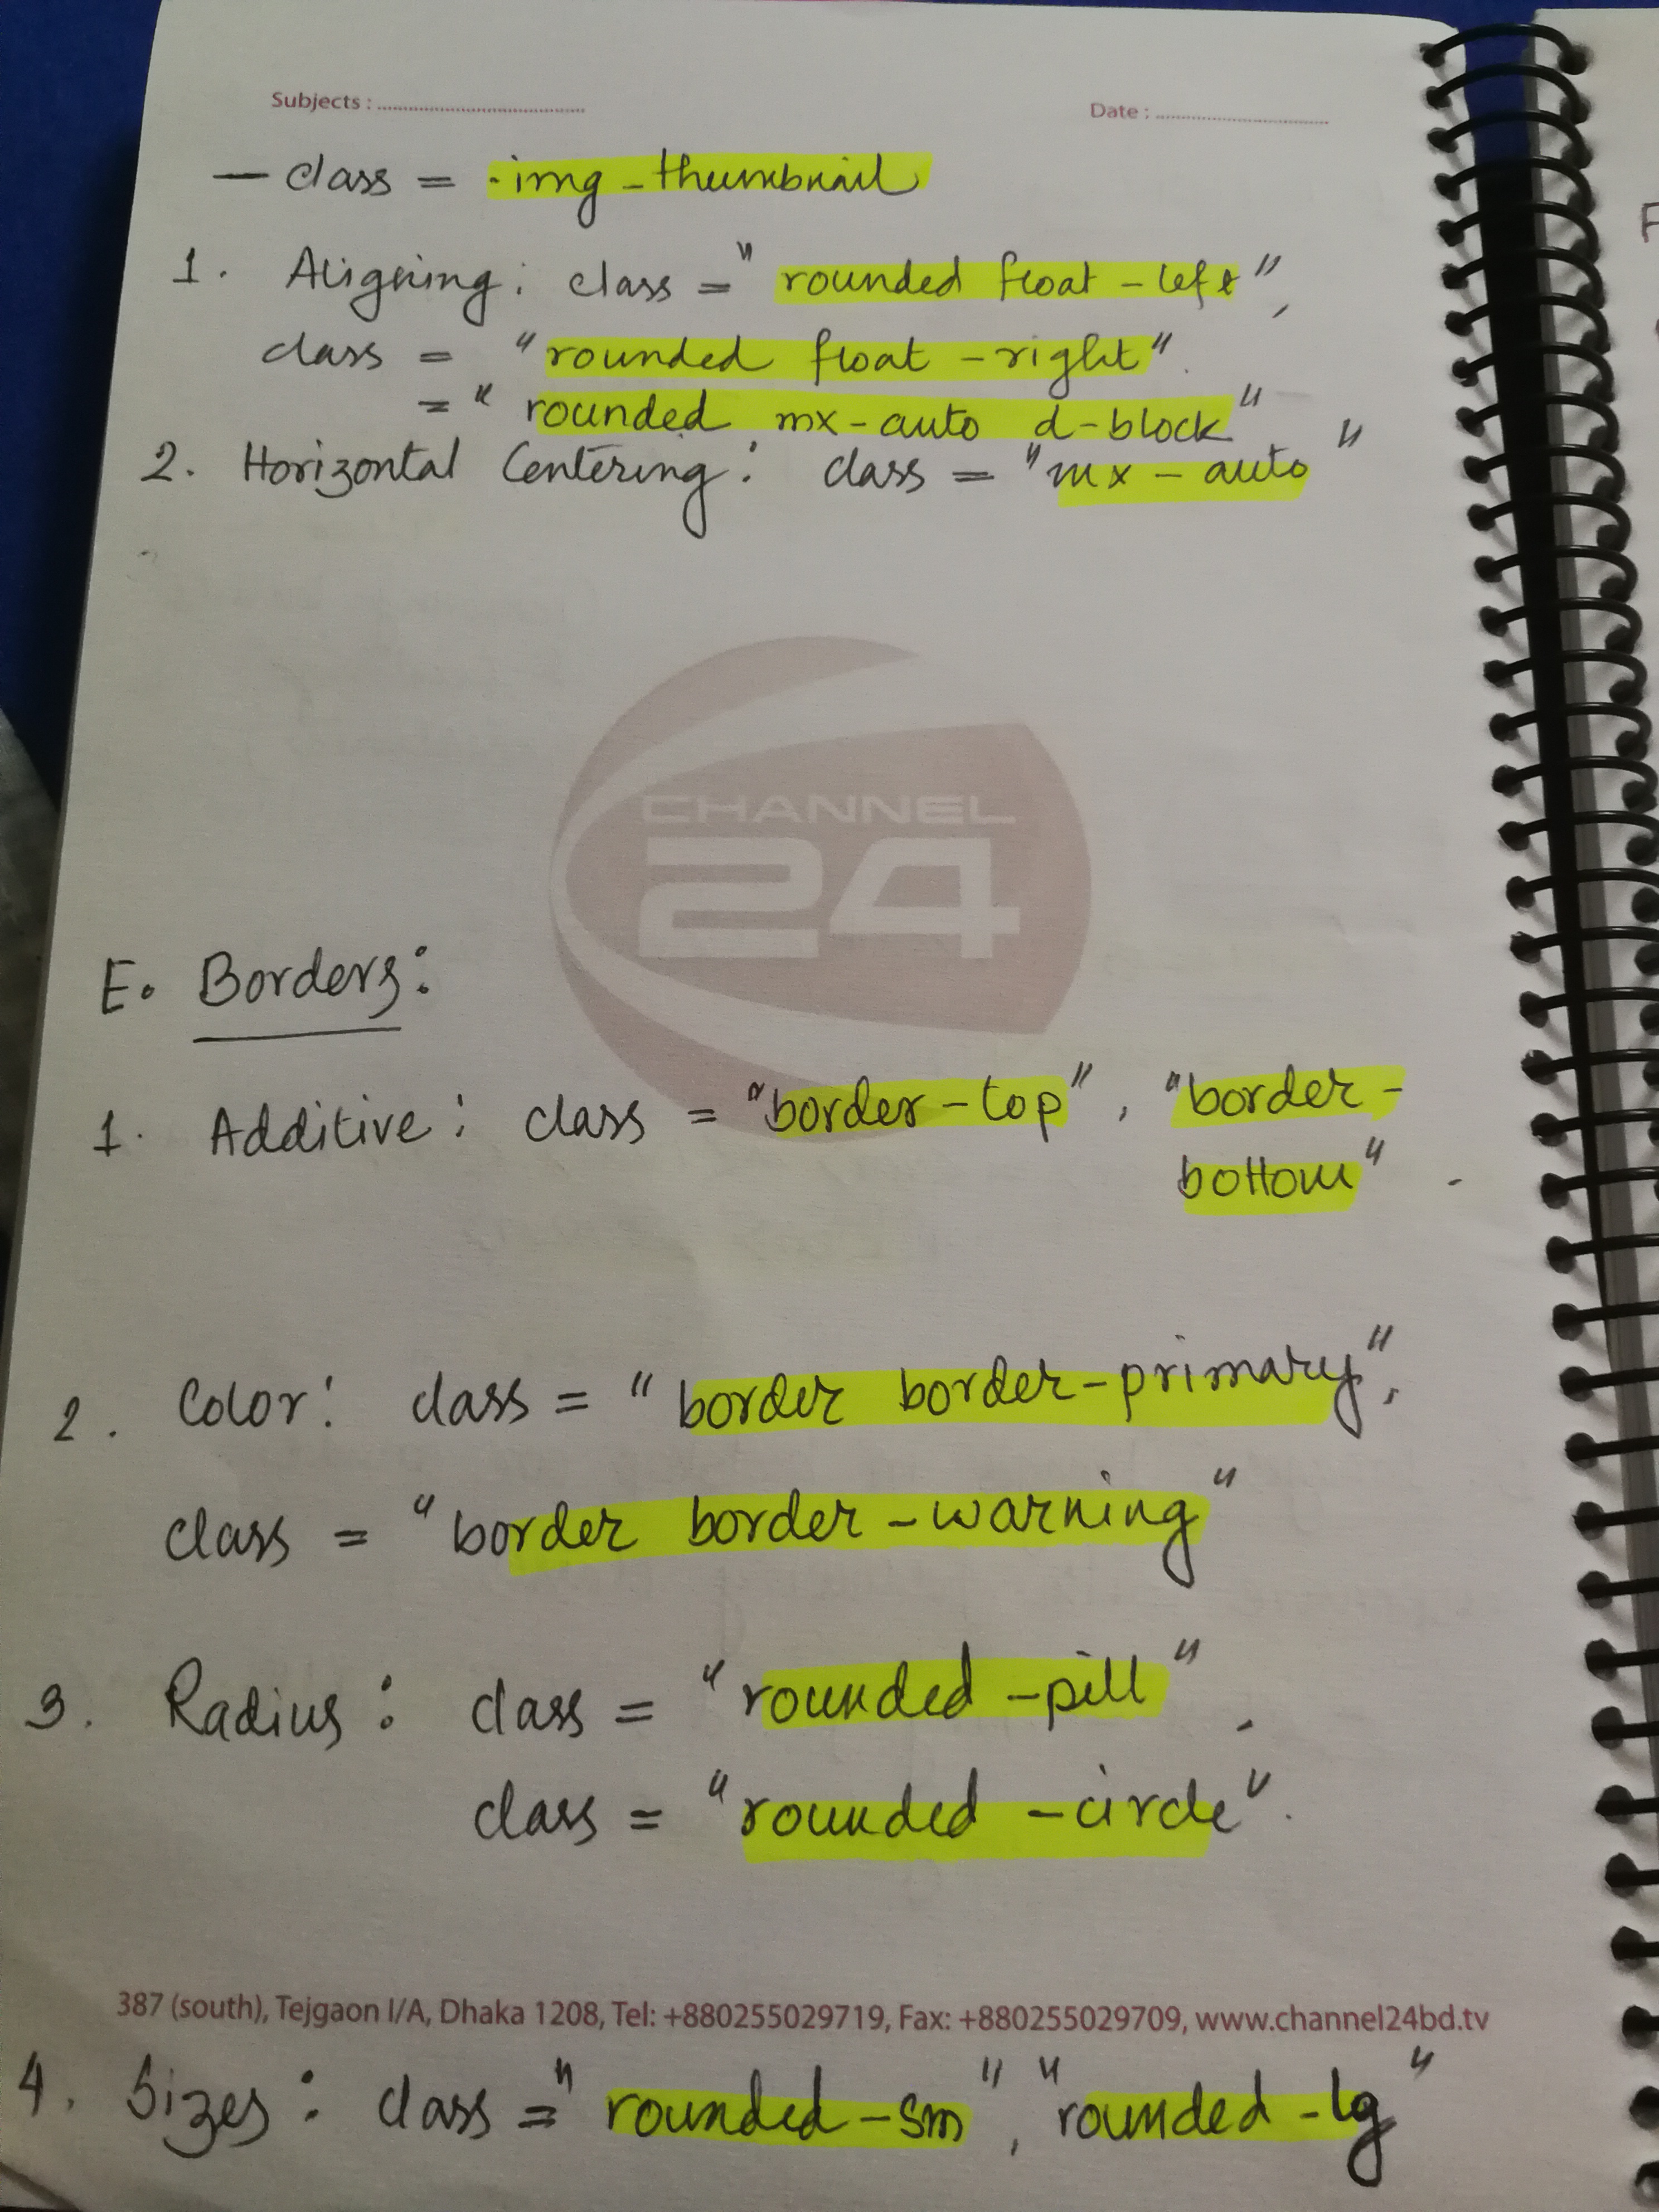 Subjects : ........................ Date : ........................
— class = .img-thumbnail
1. Aligning: class = "rounded float-left",
class = "rounded float-right".
= "rounded mx-auto d-block"
2. Horizontal Centering: class = "mx-auto"
CHANNEL
24
E. Borders:
1. Additive: class = "border-top", "border-
bottom".
2. Color: class = "border border-primary",
class = "border border-warning"
3. Radius: class = "rounded-pill".
class = "rounded-circle".
387 (south), Tejgaon I/A, Dhaka 1208, Tel: +880255029719, Fax: +880255029709, www.channel24bd.tv
4. Sizes: class = "rounded-sm", "rounded-lg"